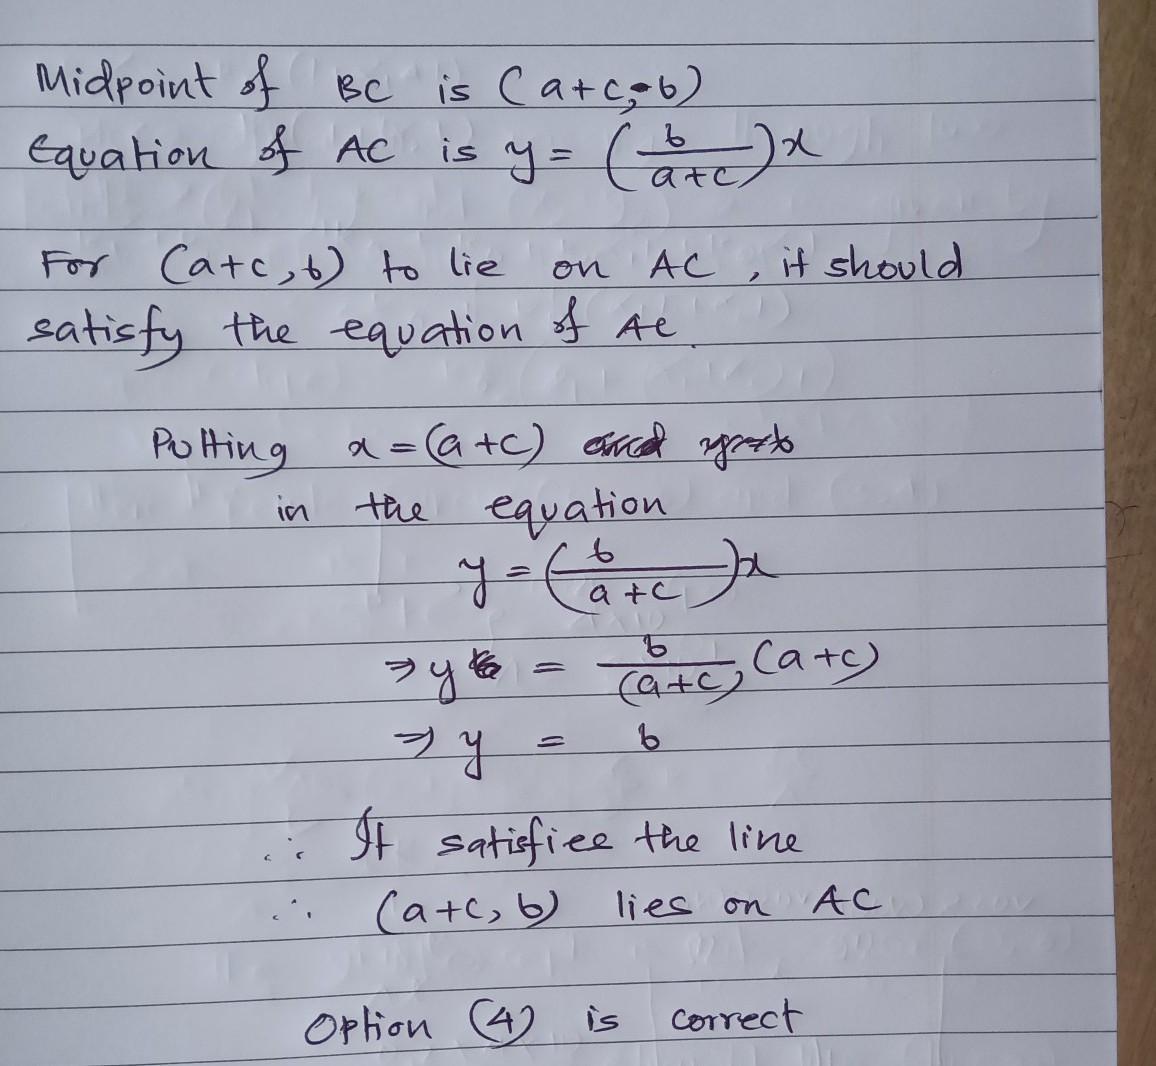 Midpoint of BC is (a+c, b)
Equation of AC is y = (b/(a+c))x
For (a+c, b) to lie on AC, it should
satisfy the equation of AC.
Putting x = (a+c)
in the equation
y = (b/(a+c))x
⇒ y = b/(a+c) (a+c)
⇒ y = b
∴ It satisfies the line
∴ (a+c, b) lies on AC
Option (4) is correct